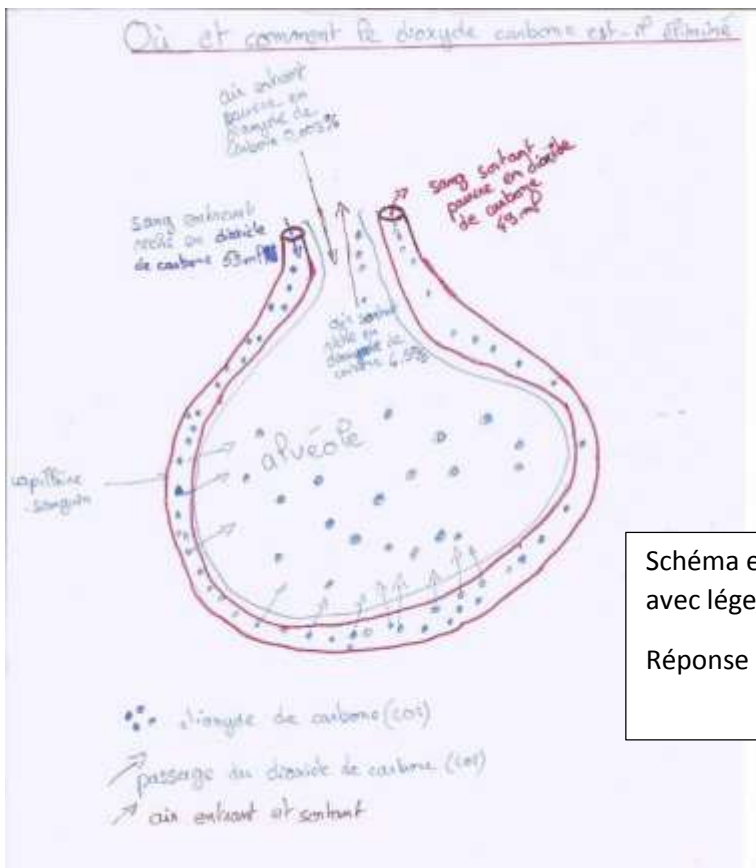 Où et comment le dioxyde carbone est-il éliminé
air entrant
pauvre en
dioxyde de
carbone 0,003%
sang sortant
pauvre en dioxide
de carbone
49 ml
sang entrant
riche en dioxicle
de carbone 53ml
air sortant
riche en
dioxyde de
carbone 4,5%
alvéole
capillaire
sanguin
Schéma e
avec lége
Réponse
dioxyde de carbone (co2)
passage du dioxide de carbone (co2)
air entrant et sortant